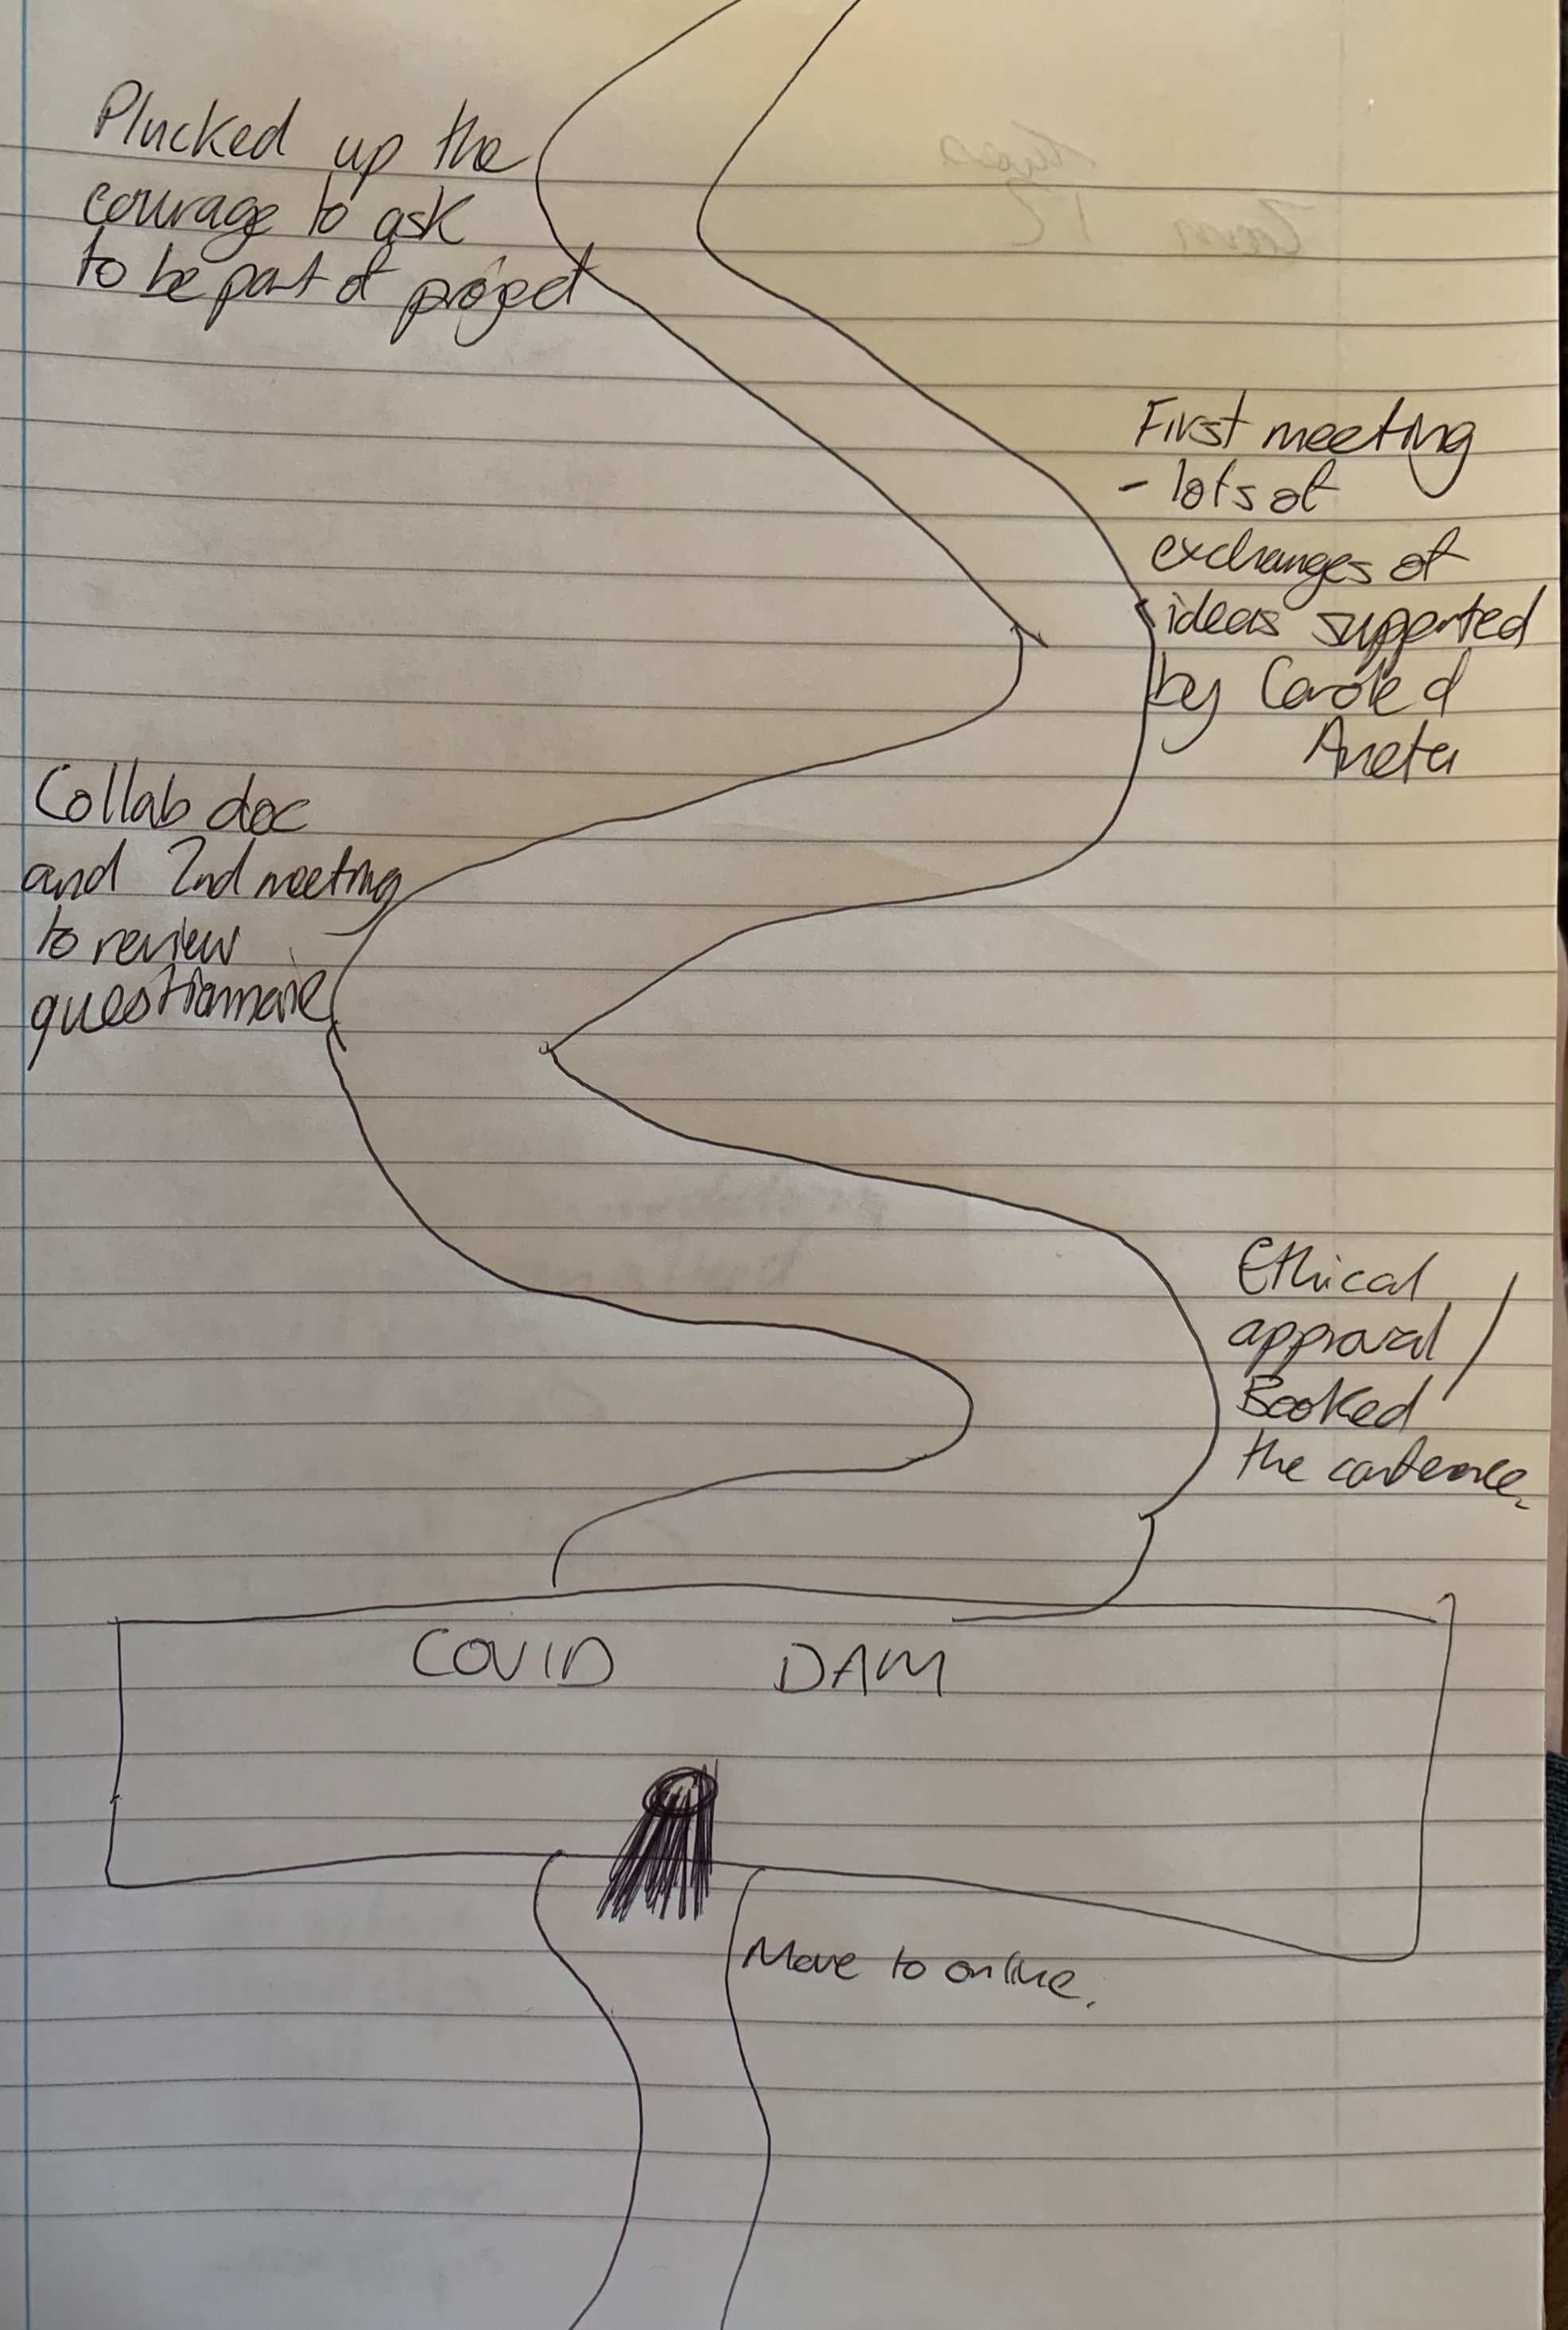 Plucked up the
courage to ask
to be part of project
First meeting
- lots of
exchanges of
ideas supported
by Carole &
Aneta
Collab doc
and 2nd meeting
to review
questionnaire
Ethical
approval /
Booked
the conference
COVID DAM
Move to online.